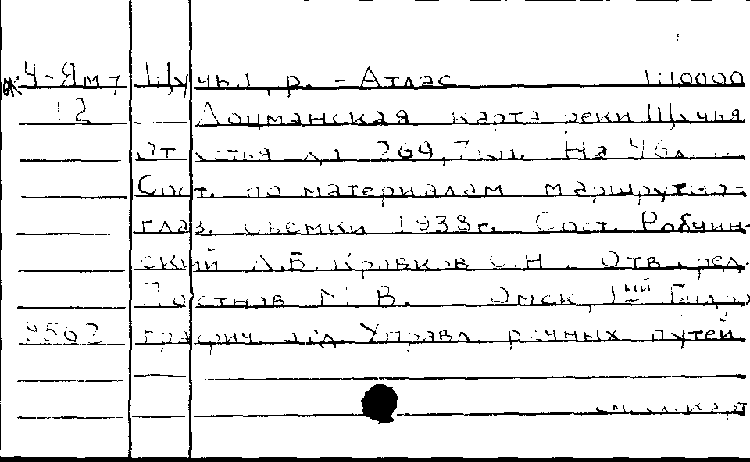 У-Ям 7 Щучья, р. - Атлас 1:10000
12 Лоцманская карта реки Щучья
от устья до 269,7 км. На 46 л.
Сост. по материалам маршрутно-
глаз. съемки 1938 г. Сост. Рабчин-
ский А.Б. Кривков С.Н. Отв. ред.
Постнов М.В. - Омск, 1ый Гидро
9562 графич. отд. Управл. речных путей
см. сл. карт